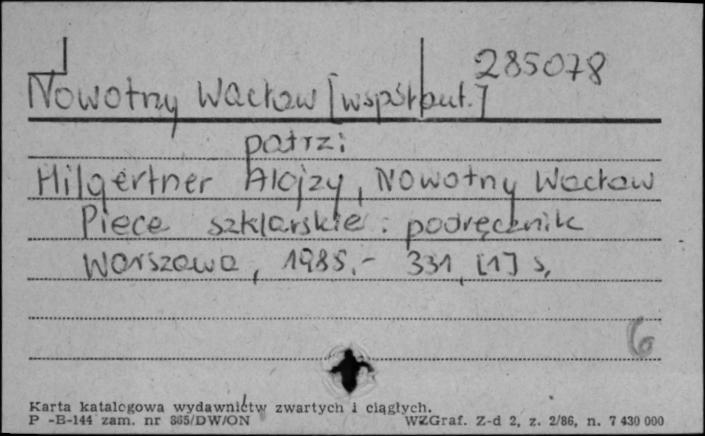 285078
Nowotny Wacław [współaut.]
patrzi
Hilgertner Alojzy, Nowotny Wacław
Piece szklarskie : podręcznik
Warszawa, 1985.- 331, [1] s,
6
Karta katalogowa wydawnictw zwartych i ciągłych.
P -B-144 zam. nr 865/DW/ON WZGraf. Z-d 2, z. 2/86, n. 7 430 000